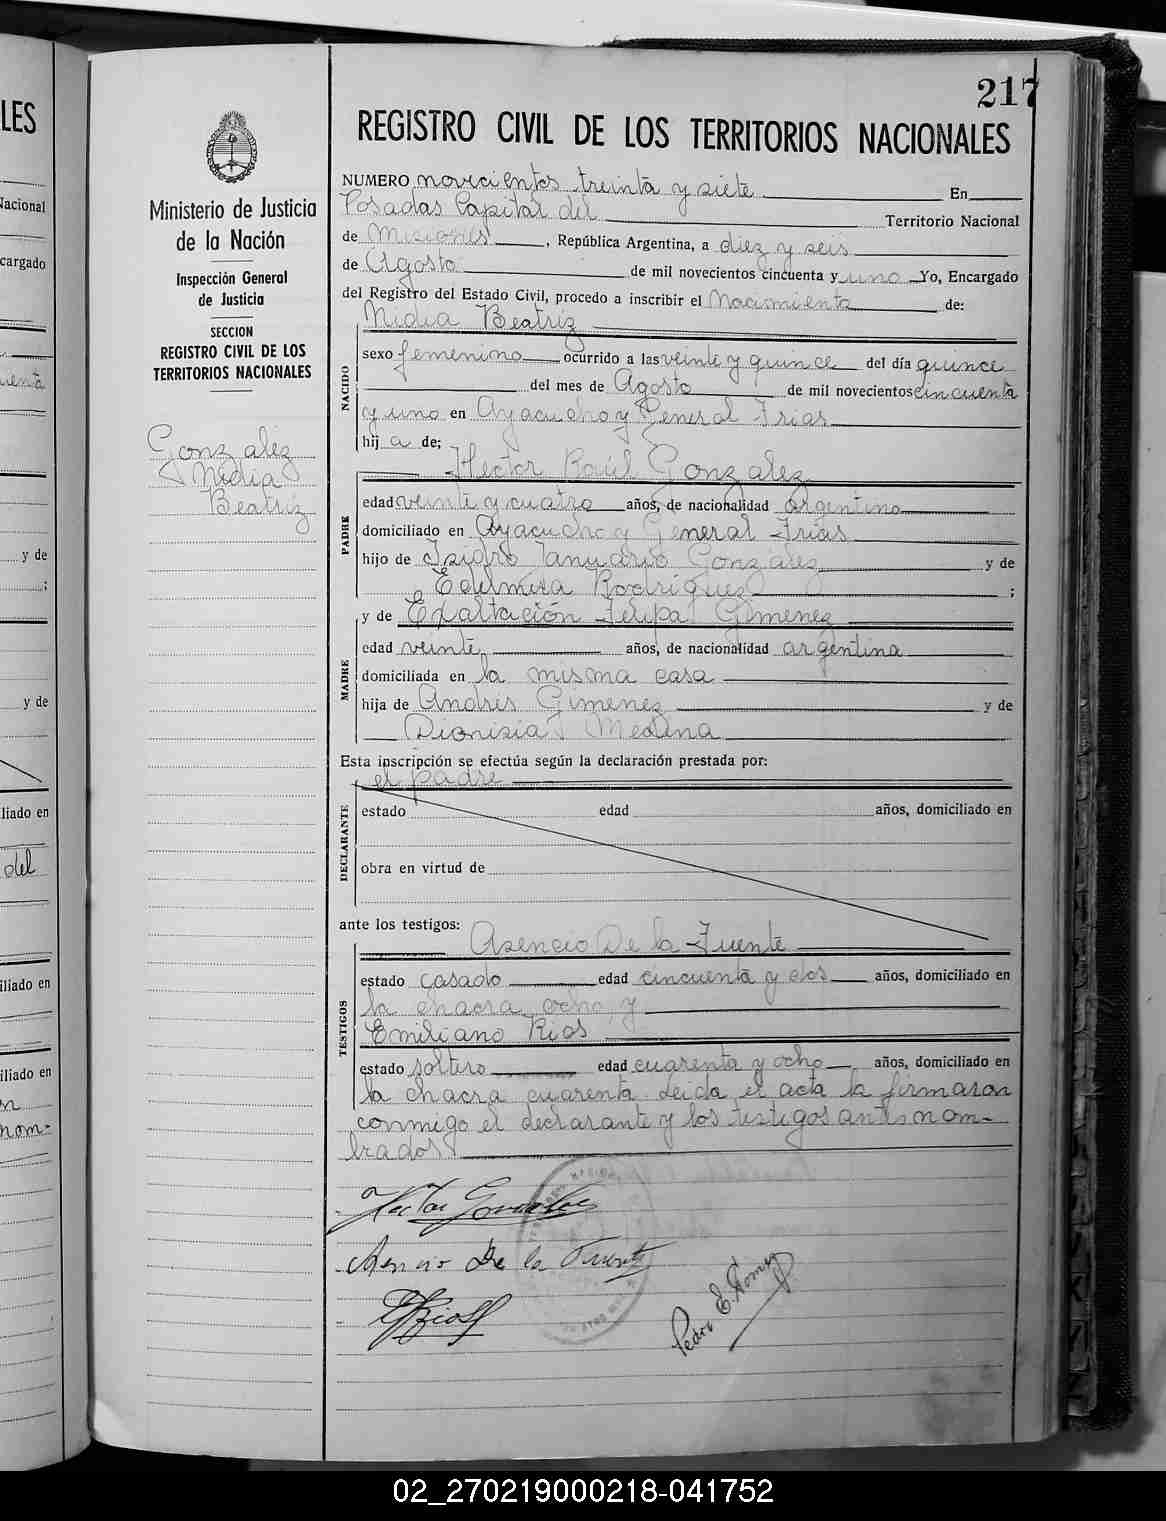 217
REGISTRO CIVIL DE LOS TERRITORIOS NACIONALES
Ministerio de Justicia
de la Nación
Inspección General
de Justicia
SECCION
REGISTRO CIVIL DE LOS
TERRITORIOS NACIONALES
Gonzalez
Nidia
Beatriz
NUMERO novecientos treinta y siete En
Posadas Capital del Territorio Nacional
de Misiones, República Argentina, a diez y seis
de Agosto de mil novecientos cincuenta y uno Yo, Encargado
del Registro del Estado Civil, procedo a inscribir el Nacimiento de:
Nidia Beatriz
NACIDO
sexo femenino ocurrido a las veinte y quince del día quince
del mes de Agosto de mil novecientos cincuenta
y uno en Ayacucho y General Frias
hija de;
Hector Raúl Gonzalez
PADRE
edad veinte y cuatro años, de nacionalidad argentino
domiciliado en Ayacucho y General Frias
hijo de Isidro Januario Gonzalez y de
Edelmira Rodríguez ;
y de Exaltación Felipa Gimenez
MADRE
edad veinte años, de nacionalidad argentina
domiciliada en la misma casa
hija de Andrés Gimenez y de
Dionisia Medina
Esta inscripción se efectúa según la declaración prestada por:
el padre
DECLARANTE
estado edad años, domiciliado en
obra en virtud de
ante los testigos:
Asencio De la Fuente
TESTIGOS
estado casado edad cincuenta y dos años, domiciliado en
la chacra ocho y
Emiliano Rios
estado soltero edad cuarenta y ocho años, domiciliado en
la chacra cuarenta. Leida el acta la firmaron
conmigo el declarante y los testigos antes nom-
brados
Hector Gonzalez
Asencio De la Fuente
E Rios
Pedro E. Gomez
LES
Nacional
cargado
y de
;
y de
liado en
del
iliado en
iliado en
nom-
02_270219000218-041752